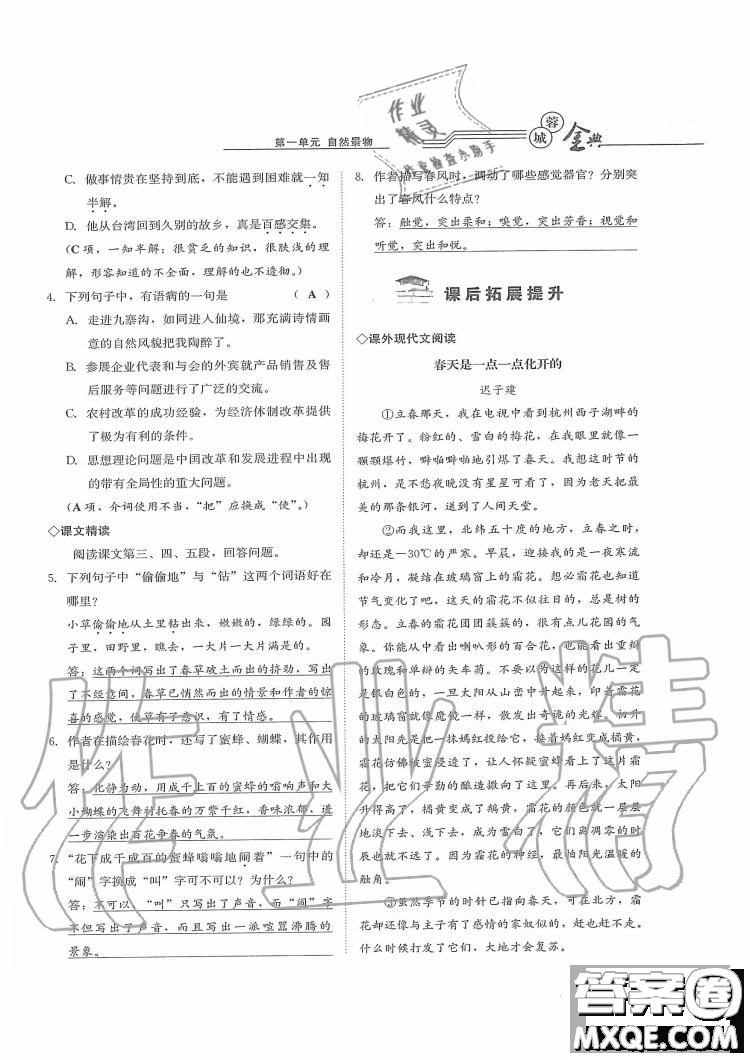 第一单元 自然景物
蓉城金典
作业精灵
C. 做事情贵在坚持到底，不能遇到困难就一知
半解。
D. 他从台湾回到久别的故乡，真是百感交集。
(C 项，一知半解：很贫乏的知识，很肤浅的理
解，形容知道的不全面，理解的也不透彻。)
4. 下列句子中，有语病的一句是 （ A ）
A. 走进九寨沟，如同进入仙境，那充满诗情画
意的自然风貌把我陶醉了。
B. 参展企业代表和与会的外宾就产品销售及售
后服务等问题进行了广泛的交流。
C. 农村改革的成功经验，为经济体制改革提供
了极为有利的条件。
D. 思想理论问题是中国改革和发展进程中出现
的带有全局性的重大问题。
(A 项，介词使用不当，“把”应换成“使”。)
◇课文精读
阅读课文第三、四、五段，回答问题。
5. 下列句子中“偷偷地”与“钻”这两个词语好在
哪里？
小草偷偷地从土里钻出来，嫩嫩的，绿绿的。园
子里，田野里，瞧去，一大片一大片满是的。
答：这两个词写出了春草破土而出的挤劲，写出
了不经意间，春草已悄然而出的情景和作者的惊
喜的感觉，使草有了意识，有了情感。
6. 作者在描绘春花时，还写了蜜蜂、蝴蝶，其作用
是什么？
答：化静为动，用成千上百的蜜蜂的嗡响声和大
小蝴蝶的飞舞衬托春的万紫千红，香味浓郁，进
一步渲染出百花争春的气氛。
7. “花下成千成百的蜜蜂嗡嗡地闹着”一句中的
“闹”字换成“叫”字可不可以？为什么？
答：不可以，“叫”只写出了声音，而“闹”字
不但写出了声音，而且写出一派喧嚣沸腾的
景象。
8. 作者描写春风时，调动了哪些感觉器官？分别突
出了春风什么特点？
答：触觉，突出柔和；嗅觉，突出芳香；视觉和
听觉，突出和悦。
课后拓展提升
◇课外现代文阅读
春天是一点一点化开的
迟子建
①立春那天，我在电视中看到杭州西子湖畔的
梅花开了。粉红的、雪白的梅花，在我眼里就像一
颗颗爆竹，噼啪噼啪地引爆了春天。我想这时节的
杭州，是不愁夜晚没有星星可看了，因为老天把最
美的那条银河，送到了人间天堂。
②而我这里，北纬五十度的地方，立春之时，
却还是－30℃的严寒。早晨，迎接我的是一夜寒流
和冷月，凝结在玻璃窗上的霜花。想必霜花也知道
节气变化了吧，这天的霜花不似往日的，总是树的
形态。立春的霜花团团簇簇的，很有点儿花园的气
象。你能从中看出喇叭形的百合花，也能看出重瓣
的玫瑰和单瓣的矢车菊。不要以为这样的花儿一定
是银白色的，一旦太阳从山峦中升起来，印着霜花
的玻璃窗就像魔镜一样，散发出奇诡的光辉。初升
的太阳先是把一抹嫣红投给它，接着嫣红变成橘黄，
霜花仿佛被蜜浸透了，让人怀疑蜜蜂看上了这片霜
花，把它们辛勤的酿造撒向了这里。再后来，太阳
升得高了，橘黄变成了鹅黄，霜花的颜色就一层层
地淡下去、浅下去，成为雪白了，它们离凋零的时
辰也就不远了。因为霜花的神经，最怕阳光温暖的
触角。
③虽然季节的时针已指向春天，可在北方，霜
花却还像与主子有了感情的家奴似的，赶也赶不走。
什么时候打发了它们，大地才会复苏。
作业精
答案圈
MXQE.COM